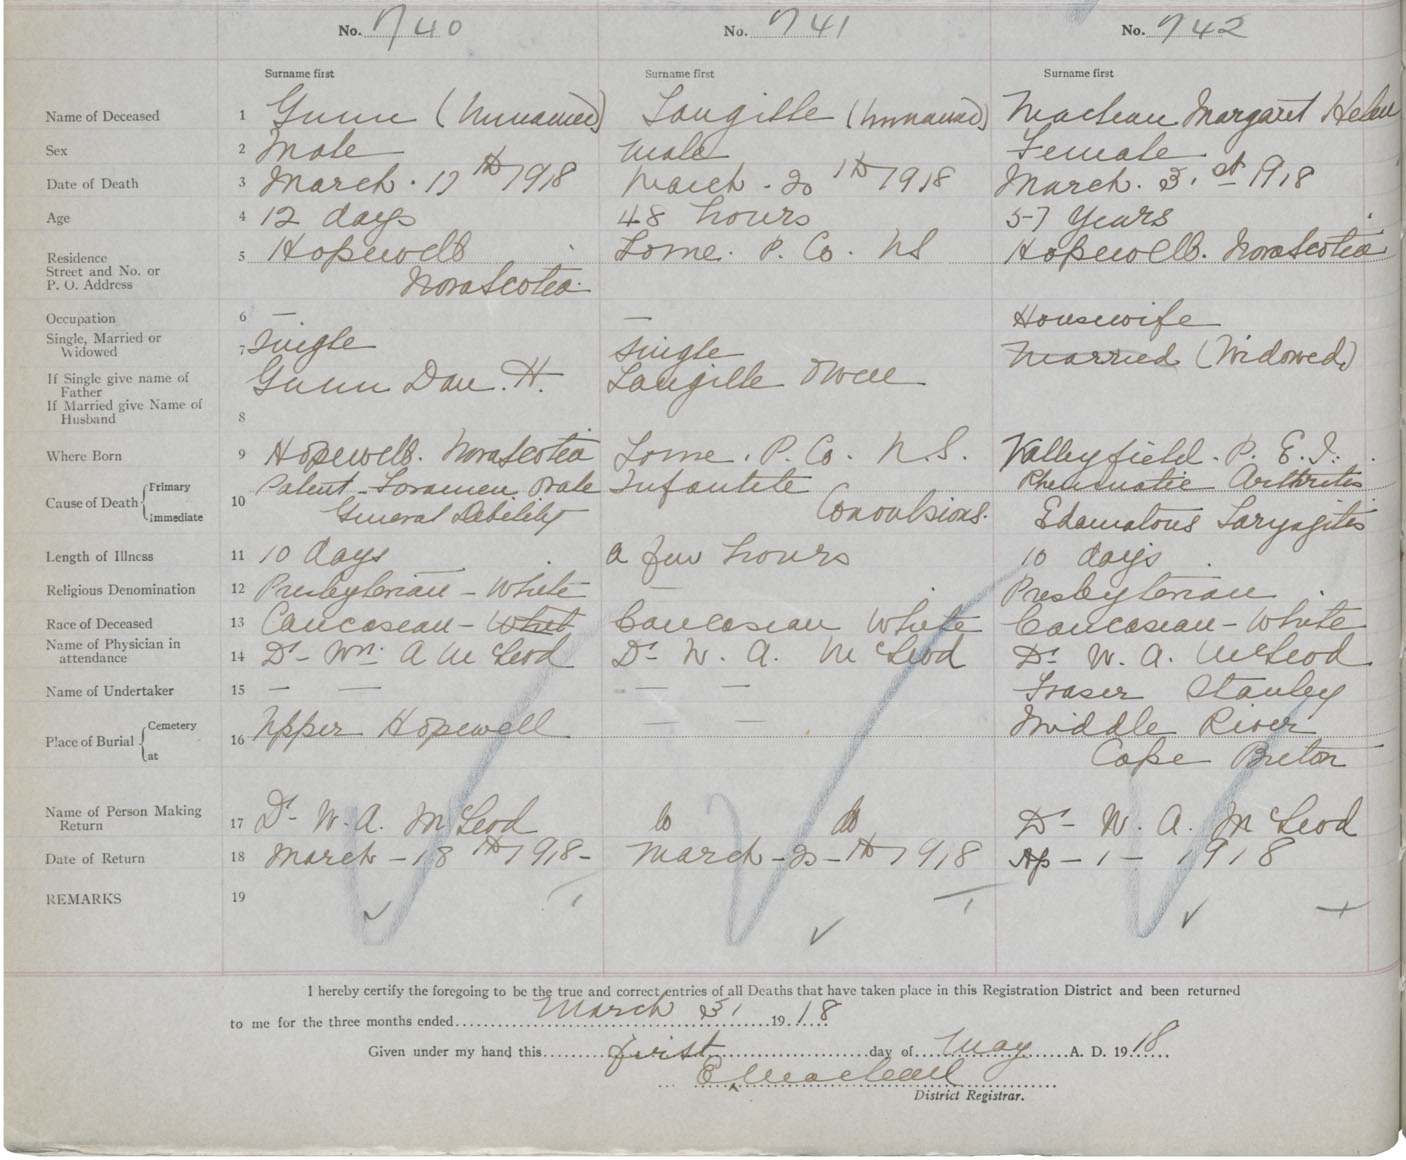 No. 740 No. 741 No. 742
Surname first Surname first Surname first
Name of Deceased 1 Gunn (Unnamed) Langille (Unnamed) MacLean Margaret Helen
Sex 2 Male Male Female
Date of Death 3 March. 17th 1918 March - 20th 1918 March. 31st 1918
Age 4 12 days 48 hours 57 Years
Residence 5 Hopewell Lorne. P. Co. NS Hopewell. Nova Scotia
Street and No. or
P. O. Address Nova Scotia
Occupation 6 — — Housewife
Single, Married or
Widowed 7 Single Single Married (Widowed)
If Single give name of
Father Gunn Dan. H. Langille
If Married give Name of
Husband 8
Where Born 9 Hopewell. Nova Scotia Lorne. P. Co. N.S. Valleyfield. P. E. I.
Cause of Death Primary 10 Patent Foramen Ovale Infantile Rheumatic Arthritis
Immediate General Debility Convulsions. Edamatous Laryngitis
Length of Illness 11 10 days a few hours 10 days
Religious Denomination 12 Presbyterian - White — Presbyterian
Race of Deceased 13 Caucasean - White Caucasean White Caucasean - White
Name of Physician in
attendance 14 Dr - Wm. A McLeod Dr W. A. McLeod Dr W. A. McLeod
Name of Undertaker 15 — — — — Fraser Stanley
Place of Burial Cemetery 16 Upper Hopewell — — Middle River
at Cape Breton
Name of Person Making
Return 17 Dr - W. A. McLeod do do Dr - W. A. McLeod
Date of Return 18 March - 18th 1918 - March - 20 - th 1918 Ap - 1 - 1918
REMARKS 19
I hereby certify the foregoing to be the true and correct entries of all Deaths that have taken place in this Registration District and been returned
to me for the three months ended March 31 1918
Given under my hand this first day of May A. D. 1918
E MacLean
District Registrar.